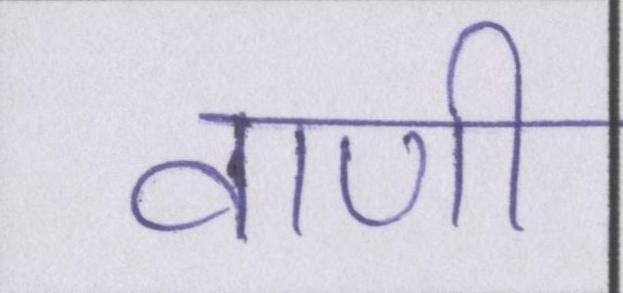 वाणी